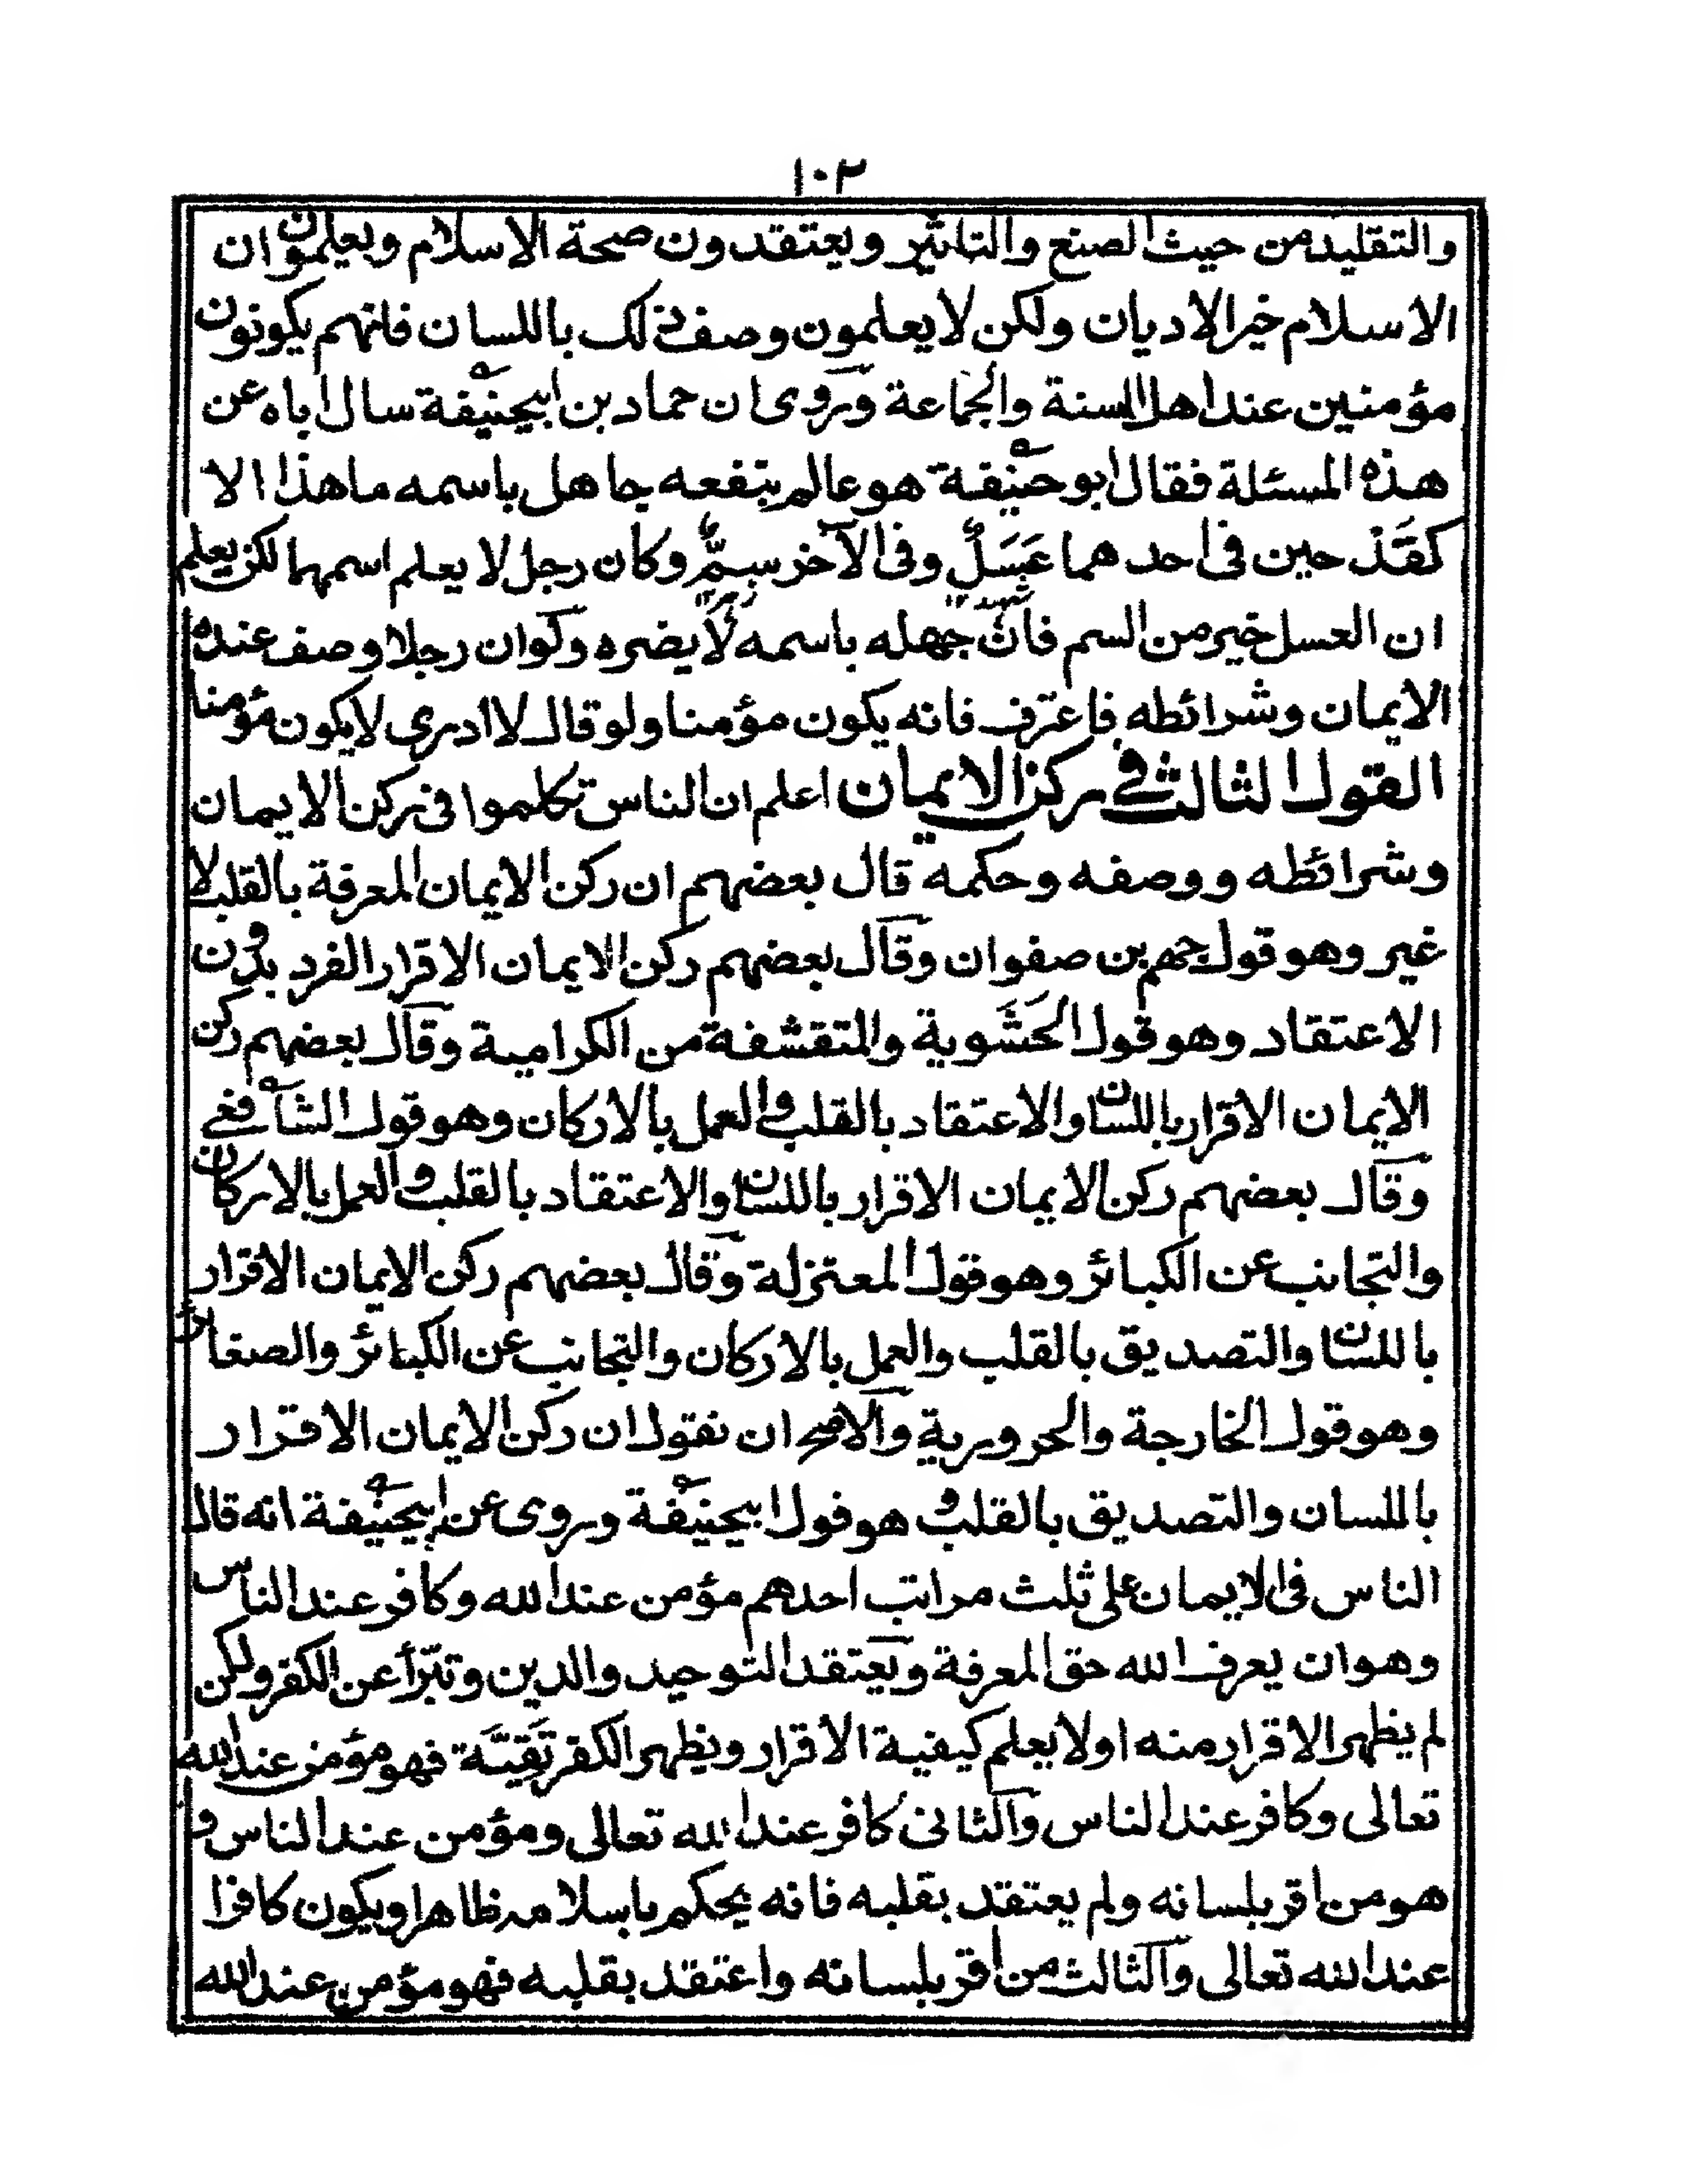 ١٠٣
والتقليد من حيث الصنع والتاثير ويعتقدون صحة الاسلام ويعلمون ان
الاسلام خير الاديان ولكن لا يعلمون وصف ذلك باللسان فانهم يكونون
مؤمنين عند اهل السنة والجماعة وروى ان حماد بن ابيحنيفة سال اباه عن
هذه المسئلة فقال ابو حنيفة هو عالم بنفعه جاهل باسمه ما هذا الا
كقدحين فى احدهما عَسَلٌ وفى الآخر سمٌّ وكان رجل لا يعلم اسمهما لكن يعلم
ان العسل خير من السم فان جهله باسمه لا يضره ولو ان رجلا وصف عنده
الايمان وشرائطه فاعترف فانه يكون مؤمنا ولو قال لا ادرى لا يكون مؤمنا
القول الثالث فى ركن الايمان اعلم ان الناس تكلموا فى ركن الايمان
وشرائطه ووصفه وحكمه قال بعضهم ان ركن الايمان المعرفة بالقلب لا
غير وهو قول جهم بن صفوان وقال بعضهم ركن الايمان الاقرار الفرد بدون
الاعتقاد وهو قول الحَشَوية والمتقشفة من الكرامية وقال بعضهم ركن
الايمان الاقرار باللسان والاعتقاد بالقلب والعمل بالاركان وهو قول الشافعى
وقال بعضهم ركن الايمان الاقرار باللسان والاعتقاد بالقلب والعمل بالاركان
والتجانب عن الكبائر وهو قول المعتزلة وقال بعضهم ركن الايمان الاقرار
باللسان والتصديق بالقلب والعمل بالاركان والتجانب عن الكبائر والصغائر
وهو قول الخارجة والحرورية والاصح ان نقول ان ركن الايمان الاقرار
باللسان والتصديق بالقلب وهو قول ابيحنيفة وروى عن ابيحنيفة انه قال
الناس فى الايمان على ثلث مراتب احدهم مؤمن عند الله وكافر عند الناس
وهو ان يعرف الله حق المعرفة ويعتقد التوحيد والدين وتبّرأ عن الكفر ولكن
لم يظهر الاقرار منه او لا يعلم كيفية الاقرار ويظهر الكفر تَقيَّة فهو مؤمن عند الله
تعالى وكافر عند الناس والثانى كافر عند الله تعالى ومؤمن عند الناس و
هو من اقر بلسانه ولم يعتقد بقلبه فانه يحكم باسلامه ظاهرا ويكون كافرا
عند الله تعالى والثالث من اقر بلسانه واعتقد بقلبه فهو مؤمن عند الله